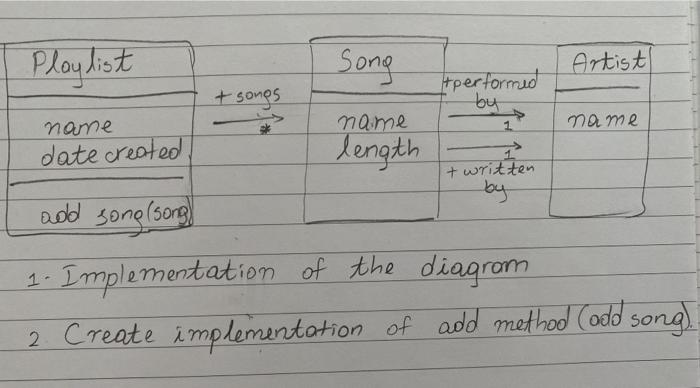 Playlist
name
date created
add song(song)
+ songs
*
Song
name
length
+performed
by
1
1
+ written
by
Artist
name
1. Implementation of the diagram
2 Create implementation of add method (add song).